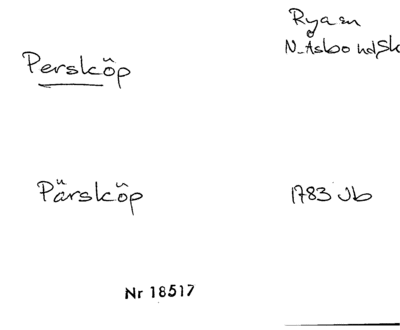 Rya sn
N. Åsbo hd, Sk
Persköp
Pärsköp
1783 Jb
Nr 18517